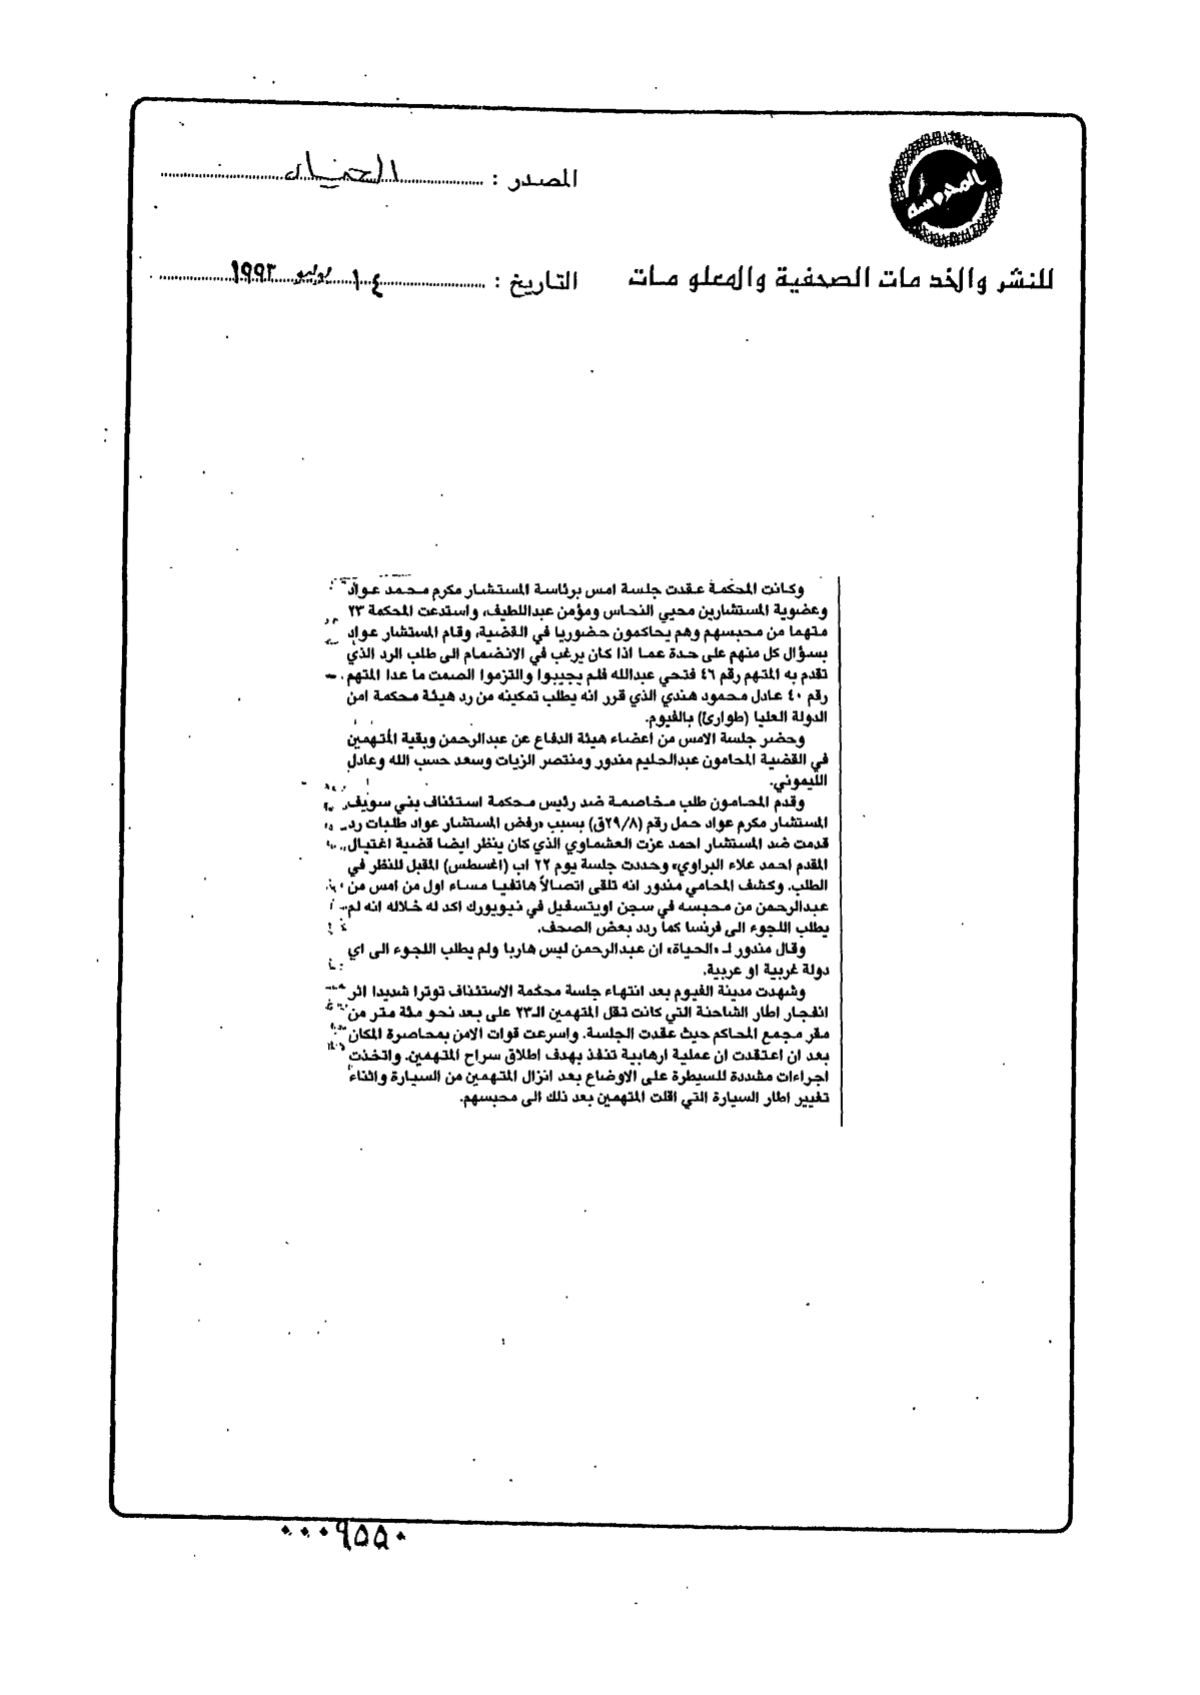 المحروسة
المصدر : الحياه
للنشر والخدمات الصحفية والمعلومات
التاريخ : ١٤ يوليو ١٩٩٣
وكانت المحكمة عقدت جلسة امس برئاسة المستشار مكرم محمد عواد
وعضوية المستشارين محيي النحاس ومؤمن عبداللطيف، واستدعت المحكمة ٢٣
متهما من محبسهم وهم يحاكمون حضوريا في القضية، وقام المستشار عواد
بسؤال كل منهم على حدة عما اذا كان يرغب في الانضمام الى طلب الرد الذي
تقدم به المتهم رقم ٤٦ فتحي عبدالله فلم يجيبوا والتزموا الصمت ما عدا المتهم
رقم ٤٠ عادل محمود هندي الذي قرر انه يطلب تمكينه من رد هيئة محكمة امن
الدولة العليا (طوارئ) بالفيوم.
وحضر جلسة الامس من اعضاء هيئة الدفاع عن عبدالرحمن وبقية المتهمين
في القضية المحامون عبدالحليم مندور ومنتصر الزيات وسعد حسب الله وعادل
الليموني.
وقدم المحامون طلب مخاصمة ضد رئيس محكمة استئناف بني سويف
المستشار مكرم عواد حمل رقم (٢٩/٨ق) بسبب «رفض المستشار عواد طلبات رد
قدمت ضد المستشار احمد عزت العشماوي الذي كان ينظر ايضا قضية اغتيال
المقدم احمد علاء البراوي» وحددت جلسة يوم ٢٢ اب (اغسطس) المقبل للنظر في
الطلب. وكشف المحامي مندور انه تلقى اتصالاً هاتفيا مساء اول من امس من
عبدالرحمن من محبسه في سجن اويتسفيل في نيويورك اكد له خلاله انه لم
يطلب اللجوء الى فرنسا كما ردد بعض الصحف.
وقال مندور لـ «الحياة» ان عبدالرحمن ليس هاربا ولم يطلب اللجوء الى اي
دولة غربية او عربية.
وشهدت مدينة الفيوم بعد انتهاء جلسة محكمة الاستئناف توترا شديدا اثر
انفجار اطار الشاحنة التي كانت تقل المتهمين الـ٢٣ على بعد نحو مئة متر من
مقر مجمع المحاكم حيث عقدت الجلسة. واسرعت قوات الامن بمحاصرة المكان
بعد ان اعتقدت ان عملية ارهابية تنفذ بهدف اطلاق سراح المتهمين. واتخذت
اجراءات مشددة للسيطرة على الاوضاع بعد انزال المتهمين من السيارة واثناء
تغيير اطار السيارة التي اقلت المتهمين بعد ذلك الى محبسهم.
٠٠٠٩٥٥٠